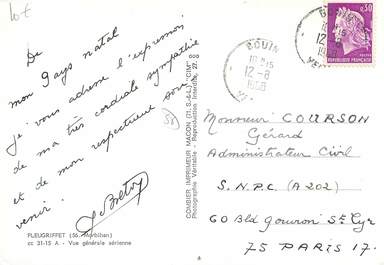 lot
De
mon pays natal
je vous adresse l'expression
de ma très cordiale sympathie
et de mon respectueux sou
venir.
58
PLEUGRIFFET (56. Morbihan)
cc 31-15 A. - Vue générale aérienne
COMBIER IMPRIMEUR MACON (71. S.-&-L.) "CIM"
Photographie Véritable - Reproduction Interdite.
BOUIN
12-8
1968
0,30
RÉPUBLIQUE FRANÇAISE
Monsieur COURSON
Gérard
Administrateur Civil
S.N.P.C. (A202)
60 Bld Gouvion St Cyr
75 PARIS 17.